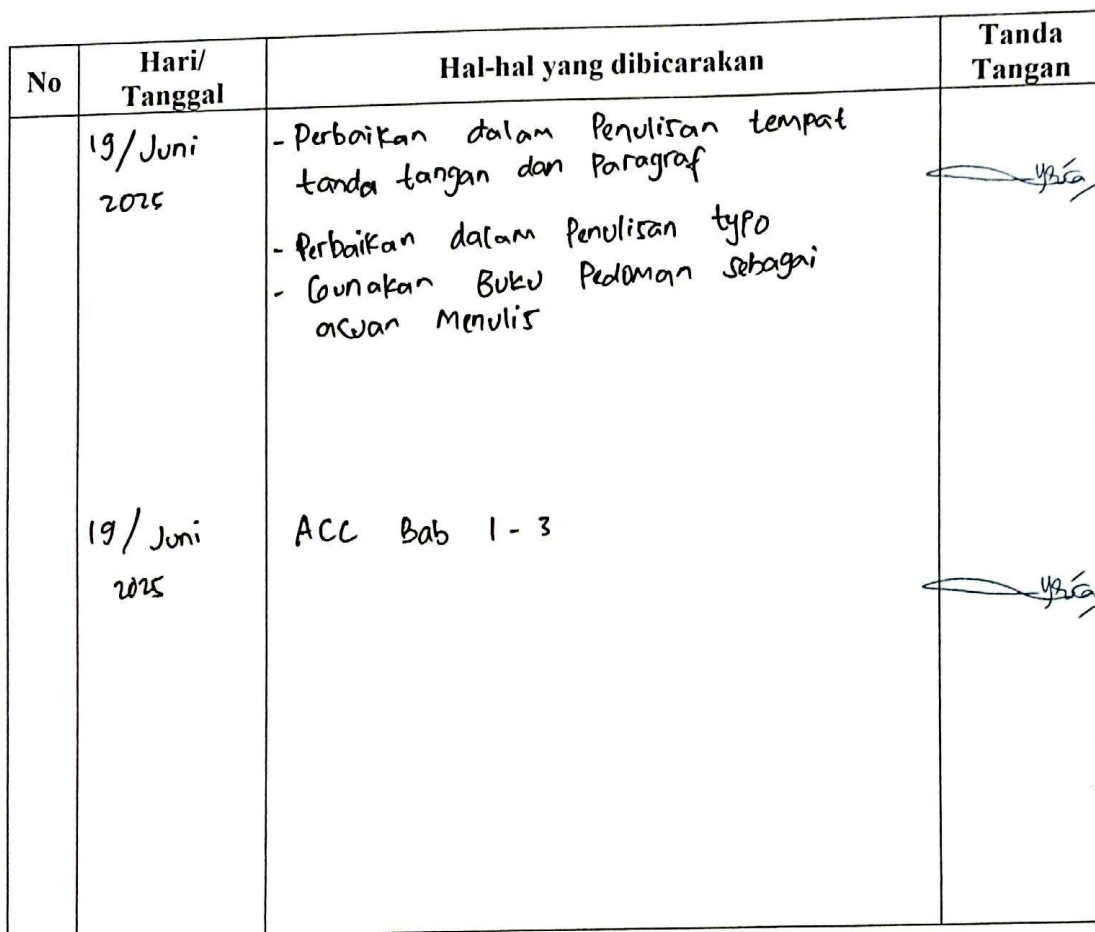 No
Hari/
Tanggal
Hal-hal yang dibicarakan
Tanda
Tangan
19/Juni
2025
- Perbaikan dalam Penulisan tempat
tanda tangan dan Paragraf
- Perbaikan dalam Penulisan typo
- Gunakan Buku Pedoman sebagai
acuan Menulis
19/Juni
2025
ACC Bab 1 - 3